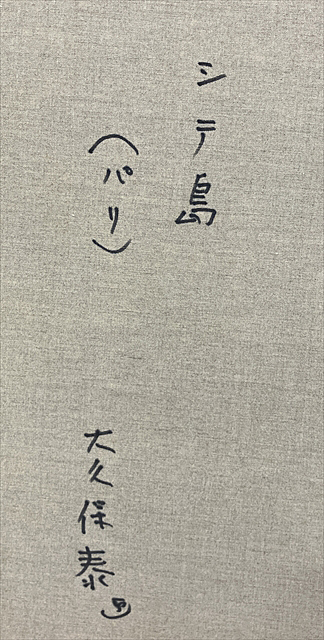 シテ島
(パリ)
大久保泰